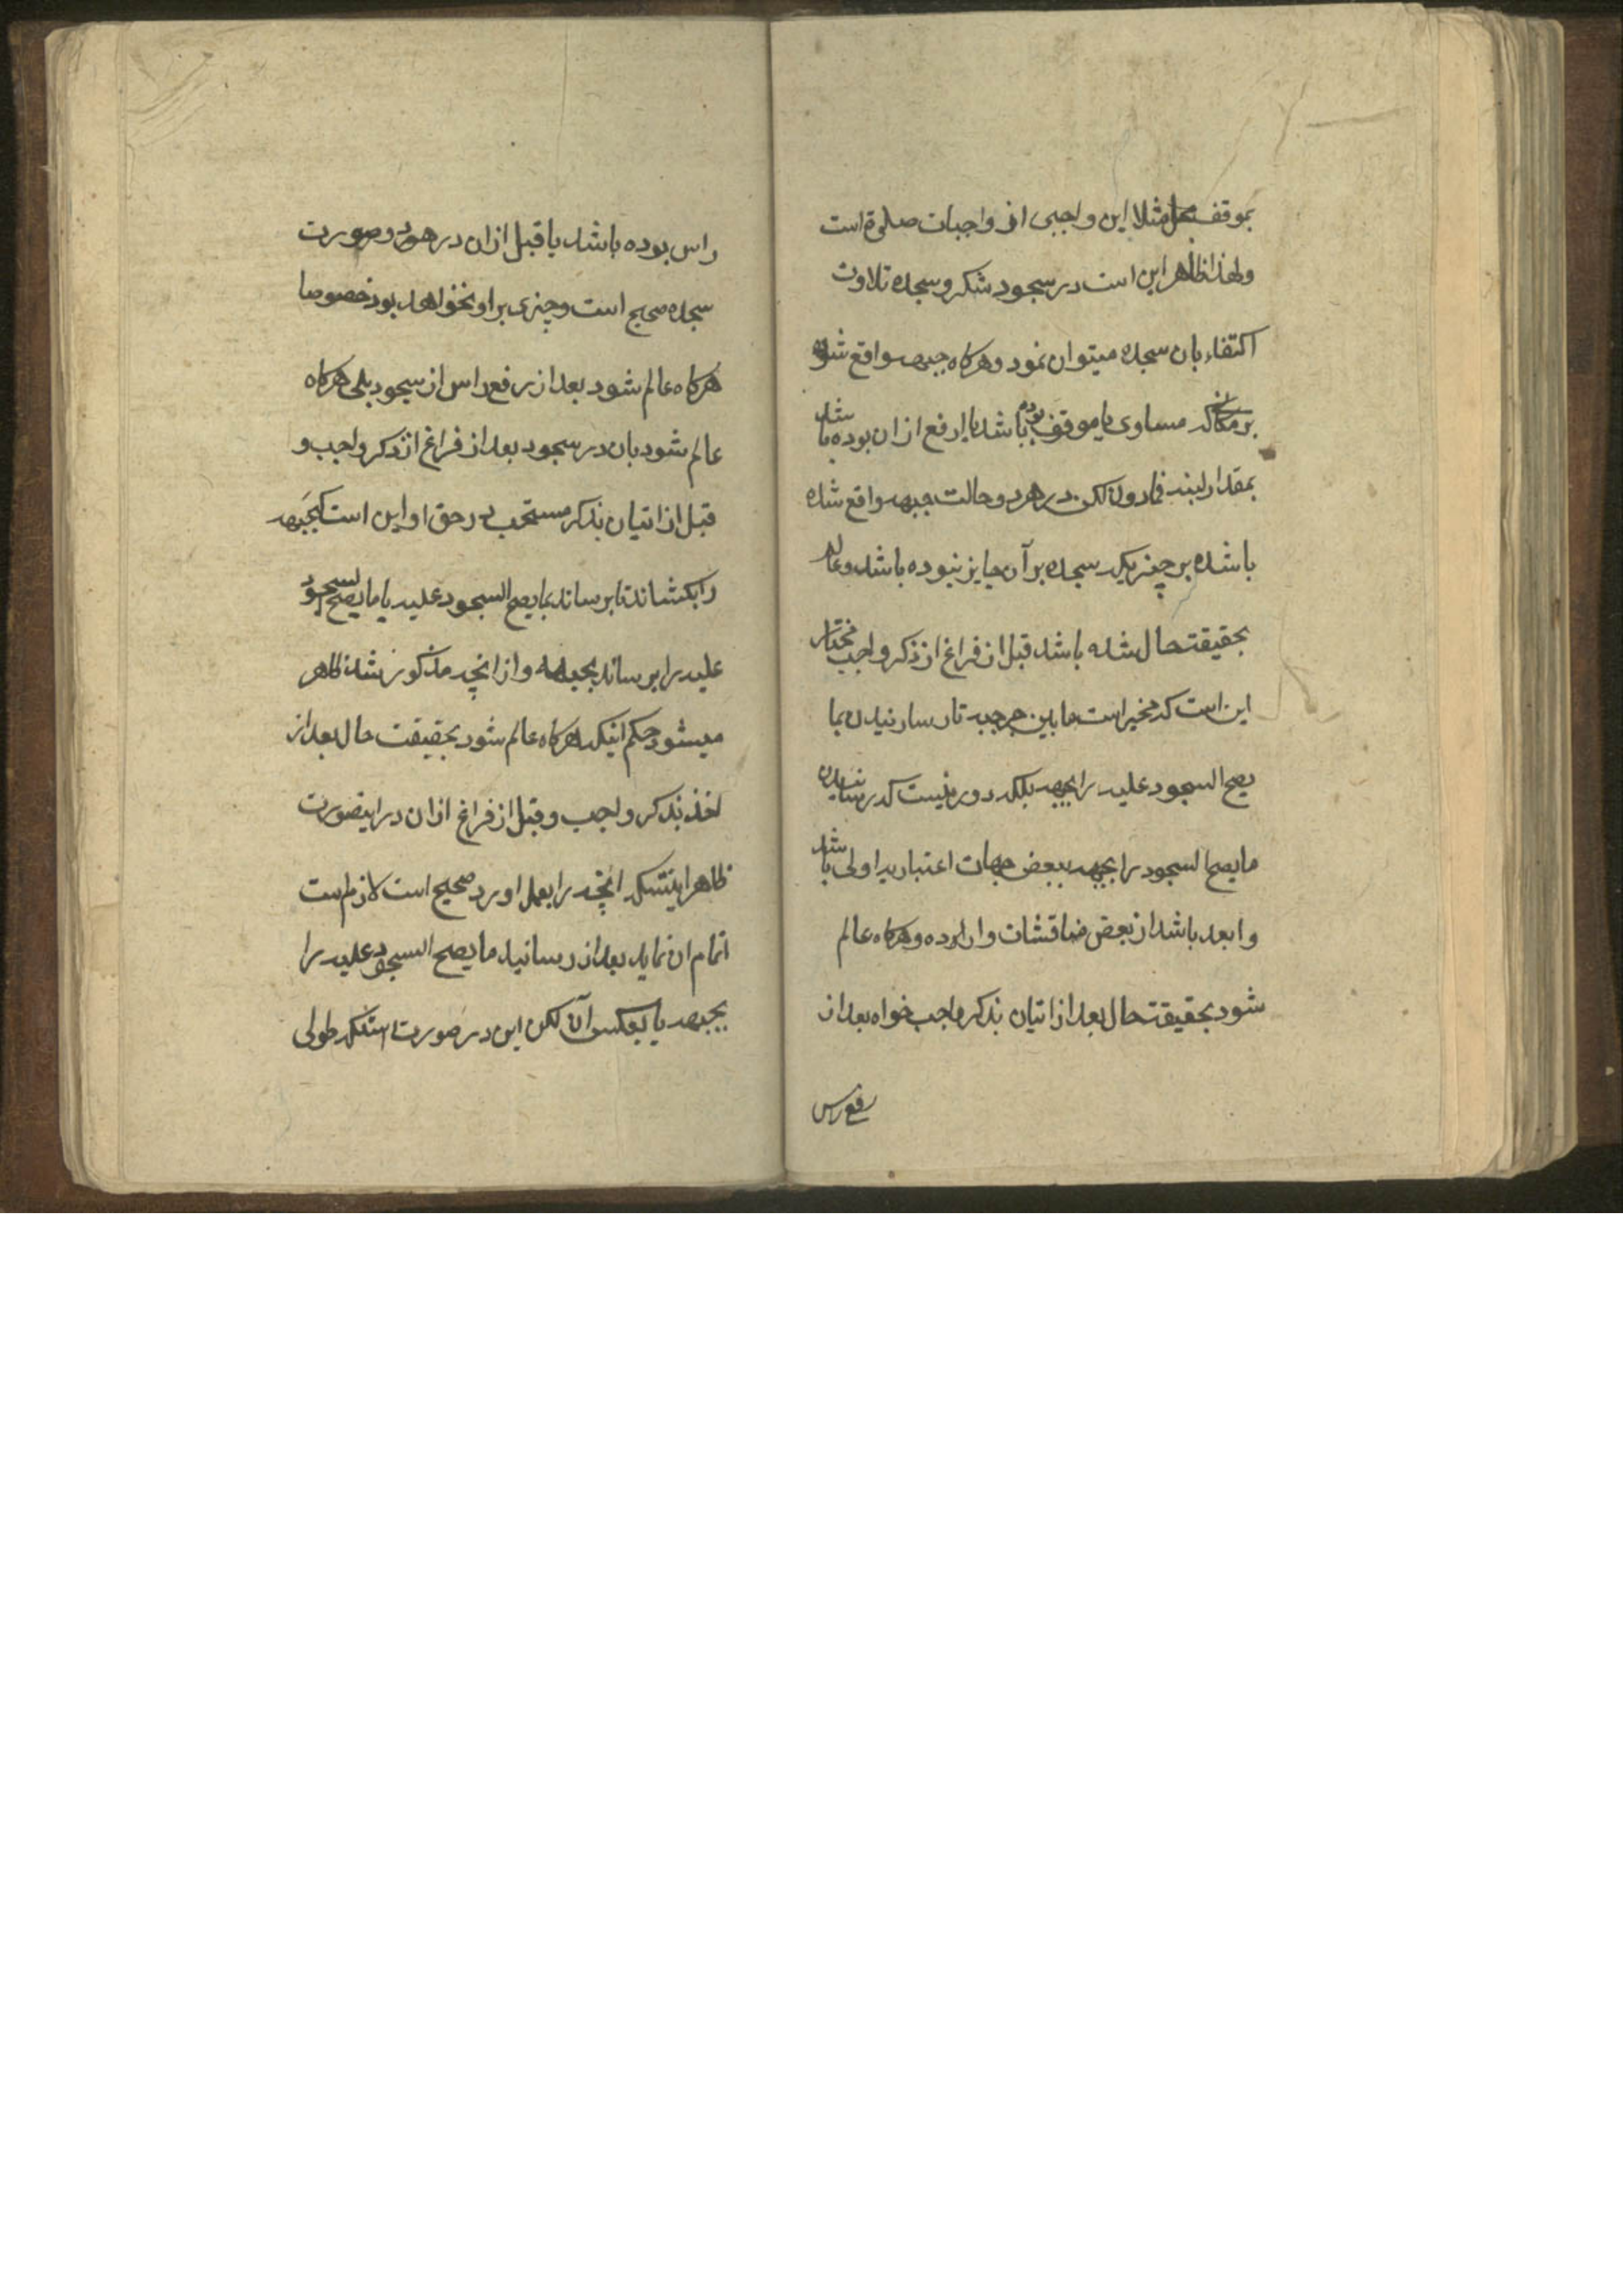 بموقف مثلا این واجبی از واجبات صلوة است
ولهذا ظاهر این است در سجود شکر و سجده تلاوت
اکتفاء بان سجده میتوان نمود و هرکاه جبهه واقع شود
بر مکانی که مساوی با موقف بوده باشد یا ارفع از ان بوده باشد
بمقدار لبنه فما دون لکن در هر دو حالت جبهه واقع شده
باشده بر چیزیکه سجده بر آن جایز نبوده باشد و عالم
بحقیقت حال شده باشد قبل از فراغ از ذکر واجب مختار
این است که مخیر است ما بین جر جبهه تا رسانیدن بما
یصح السجود علیه را بجبهه بلکه دور نیست که رسانیدن
ما یصح السجود را بجبهه ببعض جهات اعتباریه اولی باشد
و ابعد باشد از بعض مناقشات وارده و هرکاه عالم
شود بحقیقت حال بعد از اتیان بذکر واجب خواه بعد از
رفع راس
راس بوده باشد یا قبل از ان در هر دو صورت
سجده صحیح است و چیزی بر او نخواهد بود خصوصا
هرکاه عالم شود بعد از رفع راس از سجود بلی هرکاه
عالم شود بان در سجود بعد از فراغ از ذکر واجب و
قبل از اتیان بذکر مستحب در حق او این است که جبهه
را بکشاند تا برساند بما یصح السجود علیه یا ما یصح السجود
علیه را برساند بجبهه و از انچه مذکور شد ظاهر
میشود حکم اینکه هرکاه عالم شود بحقیقت حال بعد از
اخذ بذکر واجب و قبل از فراغ از ان در اینصورت
ظاهر اینستکه انچه را بعمل اورد صحیح است لازم است
اتمام ان نماید بعد از رسانید ما یصح السجود علیه را
بجبهه یا بعکس آن لکن این در صورت استکه طولی